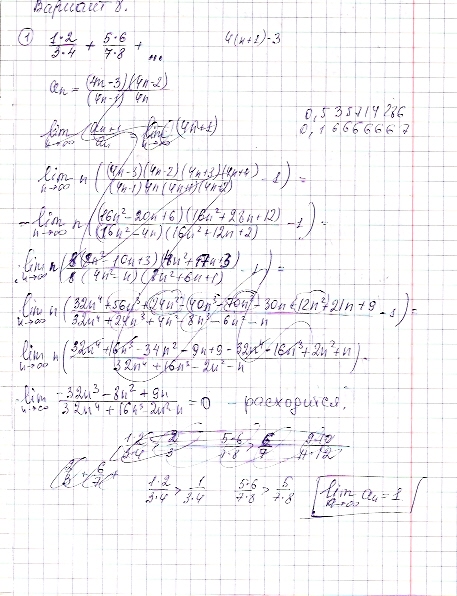 Вариант 8.
① 1·2/3·4 + 5·6/7·8 + ... 4(n+1)-3
aₙ = (4n-3)(4n-2)/(4n-1)4n
0,535714286
0,16666667
lim n→∞ aₙ₊₁/aₙ lim n→∞ (4n+1)
lim n→∞ n((4n-3)(4n-2)(4n+3)(4n+4)/(4n-1)4n(4n+1)(4n+2) - 1) =
= lim n→∞ n((16n²-20n+6)(16n²+28n+12)/(16n²-4n)(16n²+12n+2) - 1) =
lim n→∞ n(8( 10n+3)( +3)/8(4n²-n)(8n²+6n+1) - 1) =
lim n→∞ n(32n⁴+56n³+24n²-40n³-70n²-30n+12n²+21n+9/32n⁴+24n³+4n²-8n³-6n²-n - 1) =
lim n→∞ n(32n⁴+16n³-34n²-9n+9-32n⁴-16n³+2n²+n/32n⁴+16n³-2n²-n) =
= lim n→∞ -32n³-8n²+9n/32n⁴+16n³-2n²-n = 0 - расходится.
1·2/3·4 2/3 5·6/7·8 6/7 9·10/11·12
2/3 + 6/7 +
1·2/3·4 > 1/3·4 5·6/7·8 > 5/7·8 lim n→∞ aₙ = 1